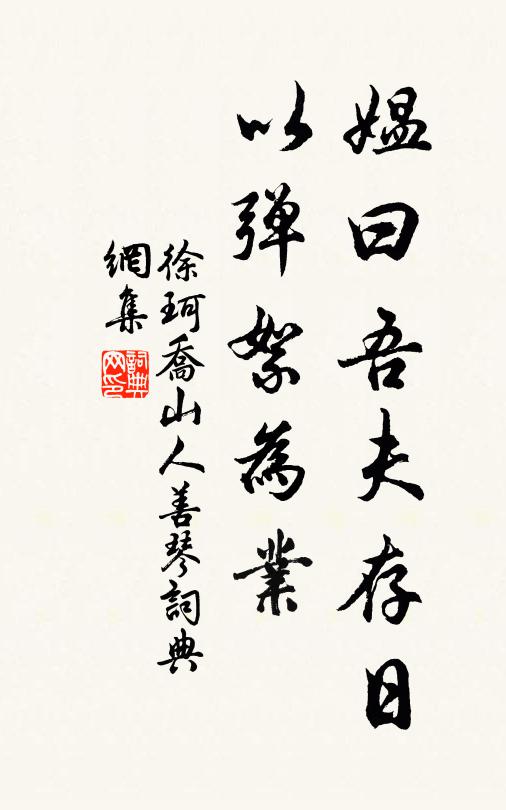 媼曰吾夫存日
以弹絮為業
徐珂喬山人善琴詞典
網集
詞典网印